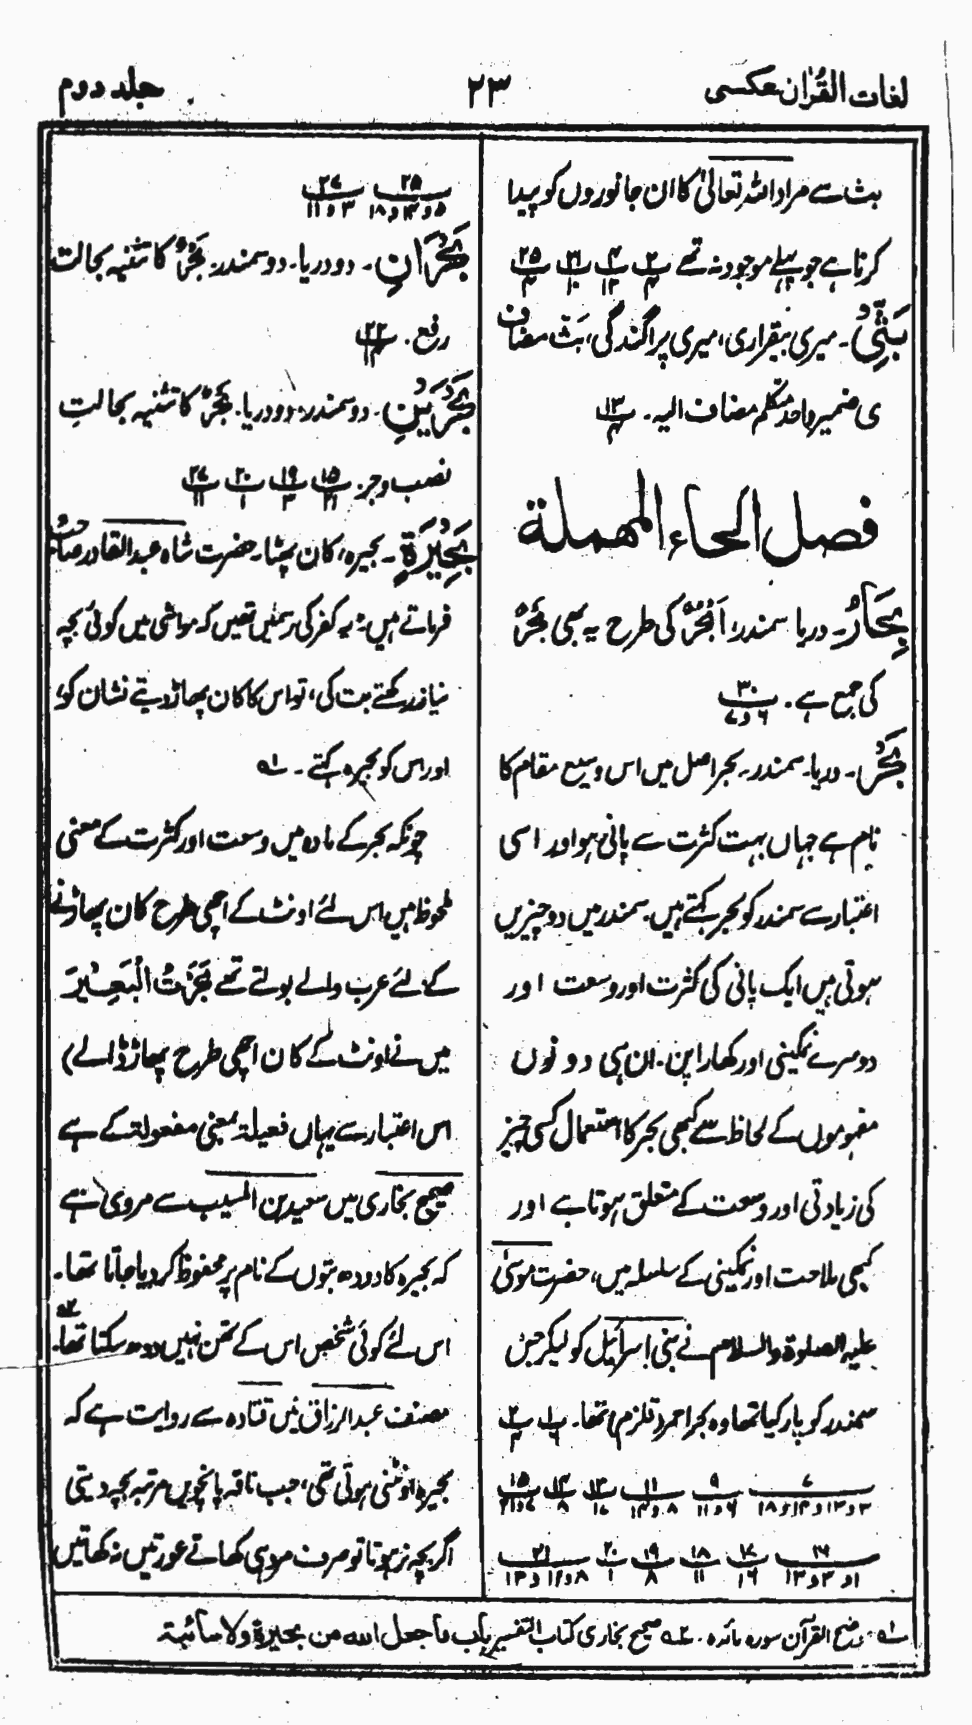 لغات القرآن عکسی
۲۳
جلد دوم
بث سے مراد اللہ تعالیٰ کا ان جانوروں کو پیدا
کرنا ہے جو پہلے موجود نہ تھے
بَثِّیْ۔ میری بیقراری، میری پراگندگی، بث مضاف
ی ضمیر واحد متکلم مضاف الیہ۔
فصل الحاء المهملة
بِحَارٌ۔ دریا سمندر، اَبْحُرٌ کی طرح یہ بھی بَحْرٌ
کی جمع ہے۔
بَحْرٌ۔ دریا۔ سمندر۔ بحر اصل میں اس وسیع مقام کا
نام ہے جہاں بہت کثرت سے پانی ہو اور اسی
اعتبار سے سمندر کو بحر کہتے ہیں۔ سمندر میں دو چیزیں
ہوتی ہیں ایک پانی کی کثرت اور وسعت اور
دوسرے نمکینی اور کھارا پن۔ ان ہی دونوں
مفہوموں کے لحاظ سے کبھی بحر کا استعمال کسی چیز
کی زیادتی اور وسعت کے متعلق ہوتا ہے اور
کبھی ملاحت اور نمکینی کے سلسلہ میں، حضرت موسیٰ
علیہ الصلوة والسلام نے بنی اسرائیل کو لیکر جس
سمندر کو پار کیا تھا وہ بحر احمر (قلزم) تھا۔
بَحْرَانِ۔ دو دریا۔ دو سمندر۔ بَحْرٌ کا تثنیہ بحالت
رفع۔
بَحْرَیْنِ۔ دو سمندر، دو دریا۔ بَحْرٌ کا تثنیہ بحالتِ
نصب وجر۔
بَحِیْرَةٍ۔ بحیرہ، کان پھٹا۔ حضرت شاہ عبدالقادر صاحب
فرماتے ہیں: یہ کفر کی رسمیں تھیں کہ مواشی میں کوئی بچہ
نیاز رکھتے بت کی، تو اس کا کان پھاڑ دیتے نشان کو،
اور اس کو بحیرہ کہتے۔ ۱ے
چونکہ بحر کے مادہ میں وسعت اور کثرت کے معنی
ملحوظ ہیں اس لئے اونٹ کے اچھی طرح کان پھاڑنے
کے لئے عرب والے بولتے تھے بَحَرْتُ الْبَعِیْرَ
میں نے اونٹ کے کان اچھی طرح پھاڑ ڈالے)
اس اعتبار سے یہاں فعیلۃ بمعنی مفعولۃ کے ہے
صحیح بخاری میں سعید بن المسیب سے مروی ہے
کہ بحیرہ کا دودھ بتوں کے نام پر محفوظ کر دیا جاتا تھا۔
اس لئے کوئی شخص اس کے تھن نہیں دوہ سکتا تھا۔ ۲ے
مصنف عبدالرزاق میں قتادہ سے روایت ہے کہ
بحیرہ اونٹنی ہوتی تھی، جب ناقہ پانچویں مرتبہ بچہ دیتی
اگر بچہ نر ہوتا تو صرف مرد ہی کھاتے عورتیں نہ کھاتیں
۱ے۔ موضح القرآن سورہ مائدہ۔ ۲ے صحیح بخاری کتاب التفسیر باب ما جعل الله من بحيرة ولا سائبة